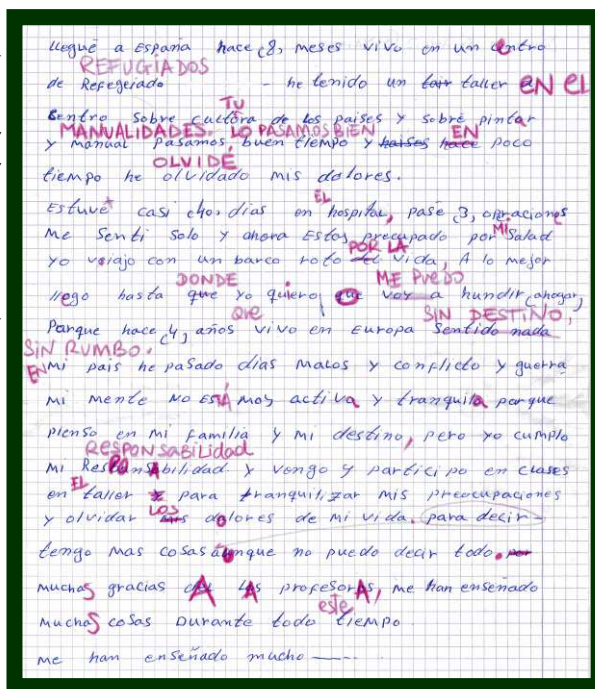 llegué a España hace (8) meses vivo en un Centro
REFUGIADOS
de Refegeiado - he tenido un taller EN EL
TU
Centro sobre cultora de los países y sobre pintar
MANUALIDADES. LO PASAMOS BIEN EN
y manual pasamos buen tiempo y hace poco
OLVIDÉ
tiempo he olvidado mis dolores.
EL
Estuve casi días en hospital, pase 3, operaciones
MI
me senti solo y ahora Estoy precupado por Salad
POR LA
yo viajo con un barco roto del vida, A lo mejor
DONDE ME PUEDO
llego hasta que yo quiero, que voy a hundir (ahogar)
QUE SIN DESTINO,
Porque hace (4) años vivo en Europa Sentido nada
SIN RUMBO.
EN mi país he pasado días malos y conflicto y guerra
mi mente NO ESTÁ moy activa y tranquila porque
pienso en mi familia y mi destino, pero yo cumplo
RESPONSABILIDAD
mi ResPOnsAbilidad y vengo y participo en clases
EL
en taller para tranquilizar mis preocupaciones
LOS
y olvidar dolores de mi vida. para decir-
tengo mas cosas aunque no puedo decir todo. por
muchas gracias A LAS profesorAs, me han enseñado
este
muchas cosas Durante todo tiempo
me han enseñado mucho